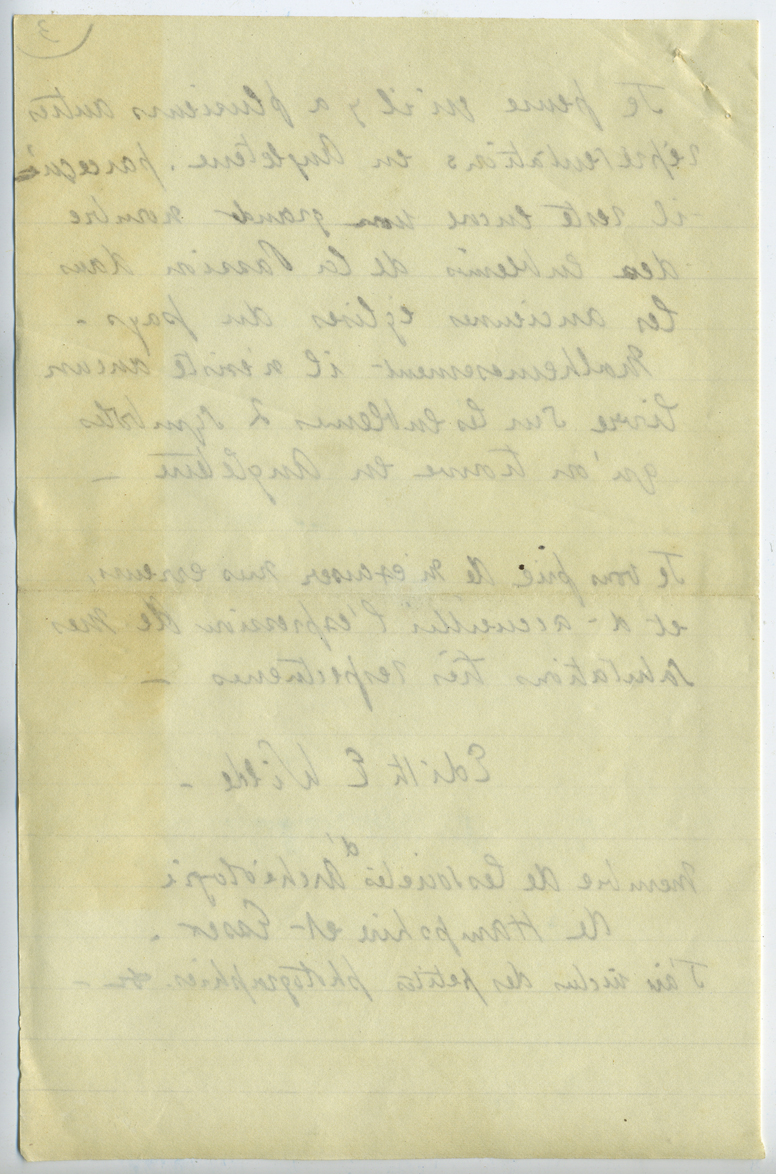 3
Je pense qu'il y a plusieurs autres
répresentations en Angleterre. parceque
il reste encore un grand nombre
des Emblems de la Passion dans
les anciennes églises du pays -
Malheureusement il n'existe aucun
livre sur les emblems & symboles
qu'on trouve en Angleterre -
Je vous prie de m'excuser mes erreurs,
et d'accueillir l'expression de mes
salutations très respectueuses -
Edith E Wilde -
membre de les sociétés d'Archéologie
de Hampshire et Essex -
J'ai inclus des petites photographies. -